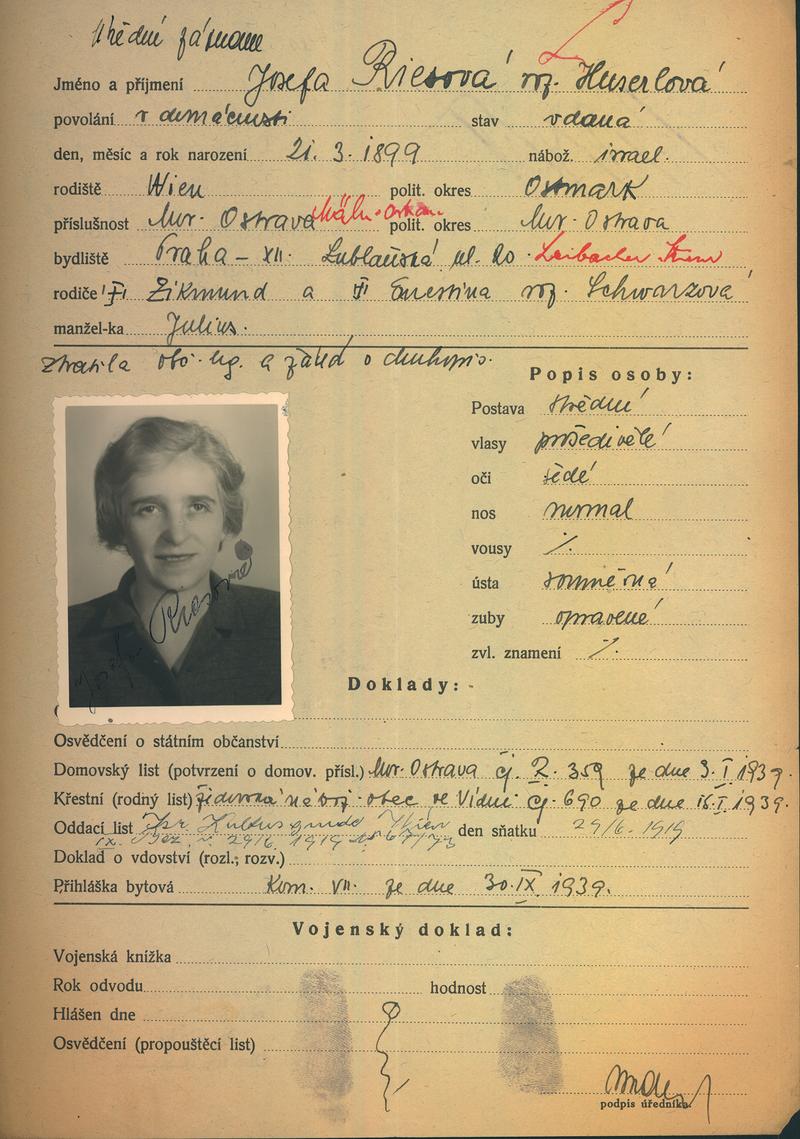 Úřední záznam
Jméno a příjmení Josefa Riesová roz. Huserlová
povolání v domácnosti stav vdaná
den, měsíc a rok narození 21. 3. 1899 nábož. israel.
rodiště Wien polit. okres Ostmark
příslušnost Mor. Ostrava Mähr. Ostrau polit. okres Mor. Ostrava
bydliště Praha - XII. Lublaňská ul. 20. Laibacher Str.
rodiče Zikmund a Ernestina roz. Schwarzová
manžel-ka Julius.
Ztratila obč. leg. a žádá o
Popis osoby:
Postava střední
vlasy prošedivělé
oči šedé
nos normal
vousy ∕.
ústa souměrná
zuby opravené
zvl. znamení ∕.
Josefa Riesová
Doklady:
Osvědčení o státním občanství
Domovský list (potvrzení o domov. přísl.) Mor. Ostrava čj. 2. 359 ze dne 3. I. 1939.
Křestní (rodný list) židovská nábož. obec ve Vídni čj. 690 ze dne 16. I. 1939.
Oddací list Isr. Kultusgemeinde Wien den sňatku 29/6. 1919
IX. 29/6. 1919
Doklad o vdovství (rozl.; rozv.)
Přihláška bytová Kom. VII. ze dne 30. IX. 1939.
Vojenský doklad:
Vojenská knížka
Rok odvodu hodnost
Hlášen dne
Osvědčení (propouštěcí list)
podpis úředníka.